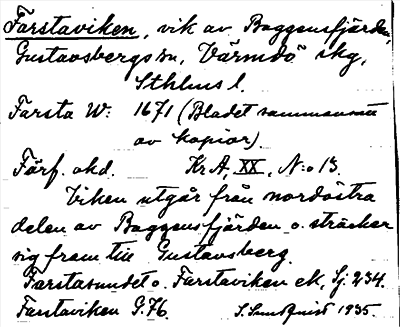 Farstaviken, vik av Baggensfjärden,
Gustavsbergs sn, Värmdö skg,
Sthlms l.
Farsta W: 1671 (Bladet sammansatt
av kopior).
Förf. okd. Kr A, XX, N:o 13.
Viken utgår från nordöstra
delen av Baggensfjärden o. sträcker
sig fram till Gustavsberg.
Farstasundet o. Farstaviken ek, Sj. 234.
Farstaviken G. 76. S. Sundquist 1935.